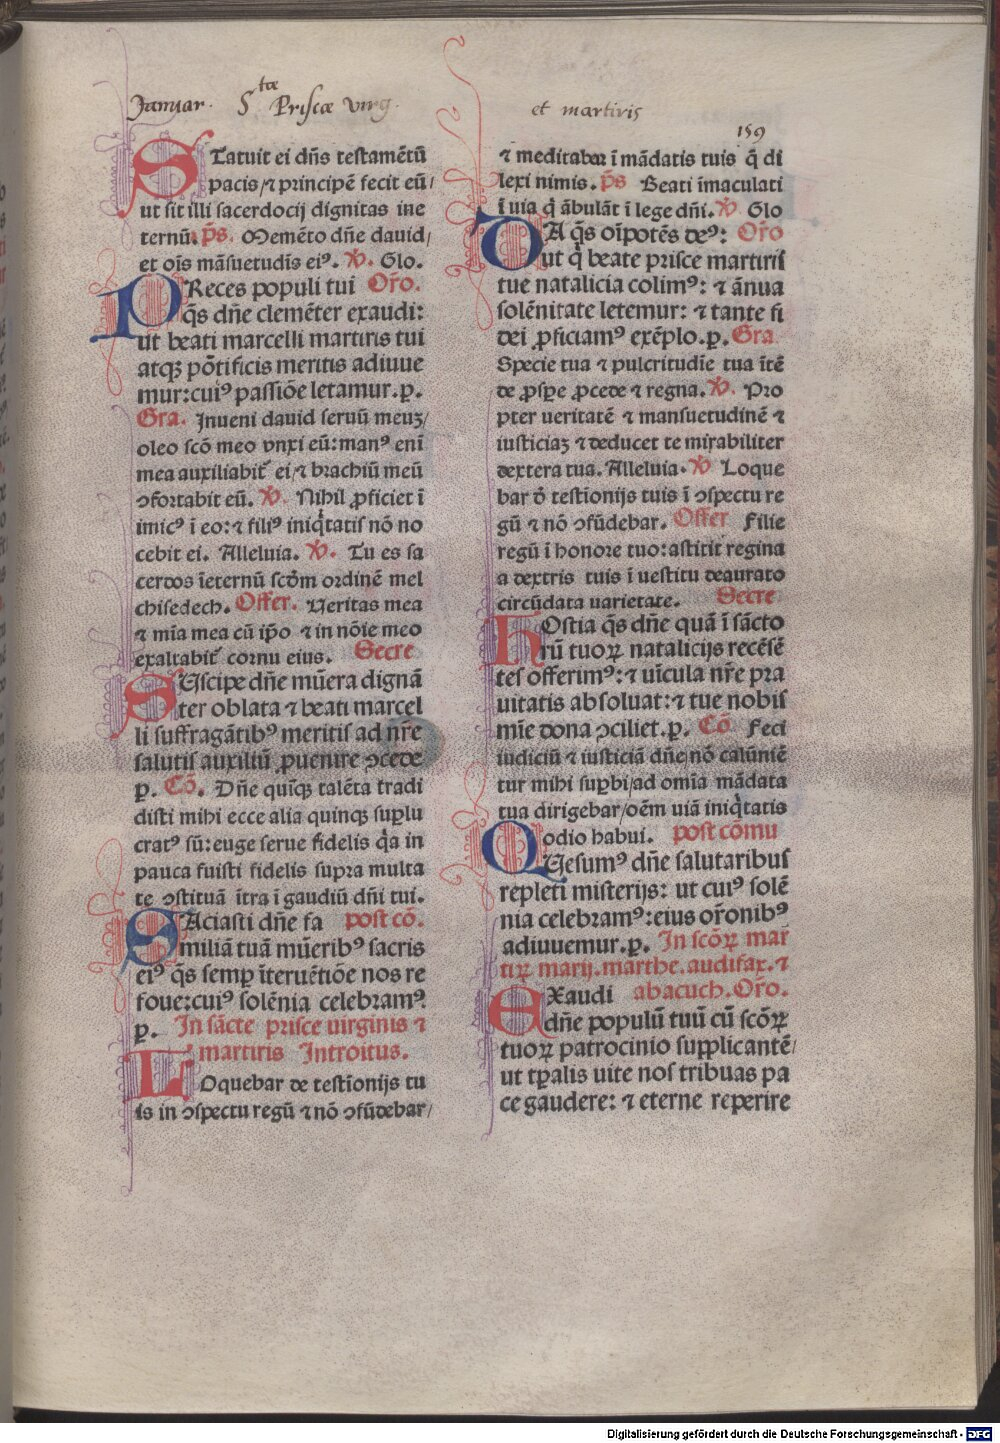 Januar. S^tae Priscæ Virg. et martiris
159
STatuit ei dn̄s testamētū
pacis/⁊ principē fecit eū/
ut sit illi sacerdocij dignitas in e
ternū. p̄s. Memēto dn̄e dauid/
et oīs māsuetudīs eiꝰ. ℣. Glo.
PReces populi tui Or̄o.
q̄s dn̄e clemēter exaudi:
ut beati marcelli martiris tui
atqꝫ pōtificis meritis adiuue
mur: cuiꝰ passiōe letamur. p.
Gra. Inueni dauid seruū meuꝫ/
oleo scō meo vnxi eū: manꝰ enī
mea auxiliabit̄ ei/⁊ brachiū meū
ꝯfortabit eū. ℣. Nihil ꝓficiet ī
imicꝰ ī eo: ⁊ filiꝰ iniq̇tatis nō no
cebit ei. Alleluia. ℣. Tu es sa
cerdos īeternū scd̄m ordinē mel
chisedech. Offer. Ueritas mea
⁊ mīa mea cū ip̄o ⁊ in nōie meo
exaltabit̄ cornu eius. Secre
SUscipe dn̄e mūera dignā
ter oblata ⁊ beati marcel
li suffragātibꝰ meritis ad nr̄e
salutis auxiliū ꝓuenire ꝯcede
p. Cō. Dn̄e quīqꝫ talēta tradi
disti mihi ecce alia quinqꝫ suꝑlu
cratꝰ sū: euge serue fidelis q̇a in
pauca fuisti fidelis supra multa
te ꝯstituā ītra ī gaudiū dn̄i tui.
SAciasti dn̄e fa post cō.
miliā tuā mūeribꝰ sacris
eiꝰ q̄s semꝑ īteruētiōe nos re
foue: cuiꝰ solēnia celebramꝰ.
p. In sācte prisce uirginis ⁊
martiris Introitus.
LOquebar de testīonijs tu
is in ꝯspectu regū ⁊ nō ꝯfūdebar/
⁊ meditabar ī mādatis tuis q̄ di
lexi nimis. p̄s Beati īmaculati
ī uia q̇ ābulāt ī lege dn̄i. ℣. Glo
DA q̄s oīpotēs deꝰ: Or̄o
ut q̇ beate prisce martiris
tue natalicia colimꝰ: ⁊ ānua
solēnitate letemur: ⁊ tante fi
dei ꝓficiamꝰ exēplo. p. Gra.
Specie tua ⁊ pulcritudīe tua ītē
de ꝓsꝑe ꝓcede ⁊ regna. ℣. Pro
pter ueritatē ⁊ mansuetudinē ⁊
iusticiaꝫ ⁊ deducet te mirabiliter
dextera tua. Alleluia. ℣ Loque
bar d̄ testīonijs tuis ī ꝯspectu re
gū ⁊ nō ꝯfūdebar. Offer Filie
regū ī honore tuo: astitit regina
a dextris tuis ī uestitu deaurato
circūdata uarietate. Secre
HOstia q̄s dn̄e quā ī sācto
rū tuoꝝ natalicijs recēsē
tes offerimꝰ: ⁊ uīcula nr̄e pra
uitatis absoluat: ⁊ tue nobis
mīe dona ꝯciliet. p. Cō. Feci
iudiciū ⁊ iusticiā dn̄e nō calūniē
tur mihi suꝑbi/ad omīa mādata
tua dirigebar/oēm uiā iniq̇tatis
odio habui. post cōmu
QUesumꝰ dn̄e salutaribus
repleti misterijs: ut cuiꝰ solē
nia celebramꝰ: eius or̄onibꝰ
adiuuemur. p. In scōꝝ mar
tiꝝ marij. marthe. audifax. ⁊
EXaudi abacuch. Or̄o.
dn̄e populū tuū cū scōꝝ
tuoꝝ patrocinio suꝑplicantē/
ut tꝑalis uite nos tribuas pa
ce gaudere: ⁊ eterne reperire
Digitalisierung gefördert durch die Deutsche Forschungsgemeinschaft - DFG